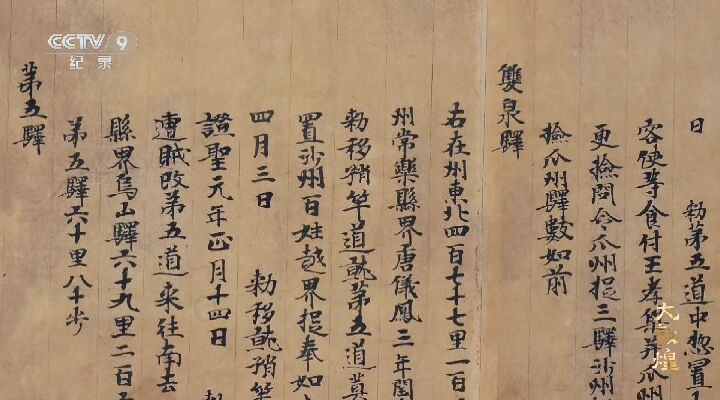 CCTV 9
纪录
日 勅第五道中惣置
客使等食付王孝傑并瓜州
更撿問令瓜州捉三驛沙州
撿瓜州驛數如前
雙泉驛
右在州東北四百七十七里一百
州常樂縣界唐儀鳳三年閏
勅移稍竿道就第五道莫
置沙州百姓越界捉奉如
四月三日 勅移就稍竿
證聖元年正月十四日
遭賊改第五道来往南去
縣界烏山驛六十九里二百
第五驛六十里八十步
第五驛
大敦煌